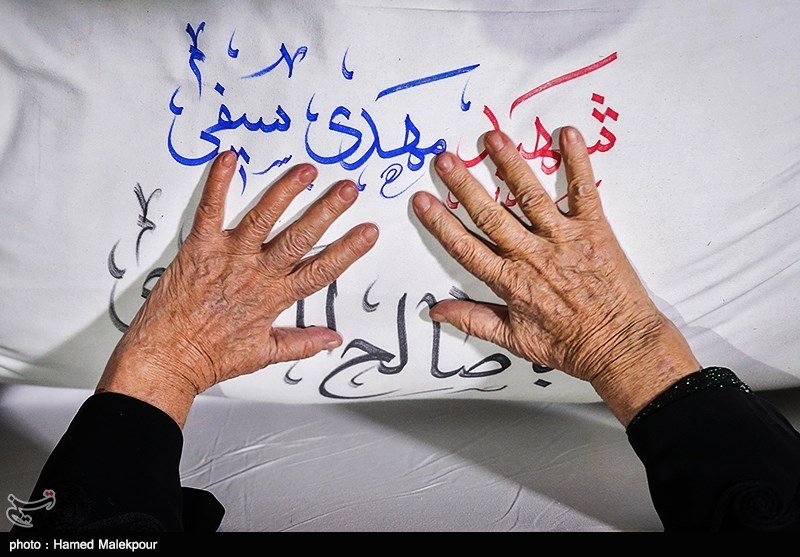 شهید مهدی سیفی
صالح
photo : Hamed Malekpour
تسنیم